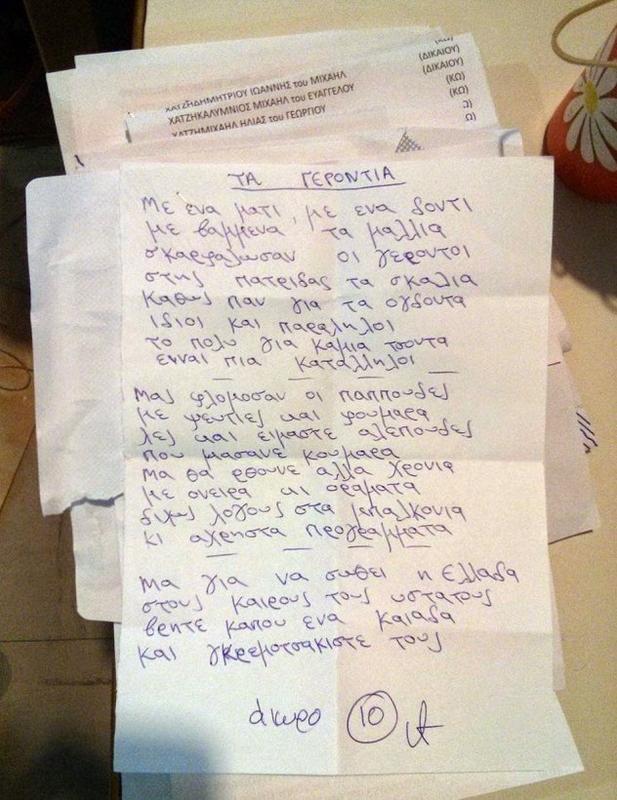 (ΚΩ)
ΧΑΤΖΗΔΗΜΗΤΡΙΟΥ ΙΩΑΝΝΗΣ του ΜΙΧΑΗΛ (ΔΙΚΑΙΟΥ)
ΧΑΤΖΗΚΑΛΥΜΝΙΟΣ ΜΙΧΑΗΛ του ΕΥΑΓΓΕΛΟΥ (ΔΙΚΑΙΟΥ)
ΧΑΤΖΗΜΙΧΑΗΛ ΗΛΙΑΣ του ΓΕΩΡΓΙΟΥ (ΚΩ)
(ΚΩ)
Ω)
ΤΑ ΓΕΡΟΝΤΙΑ
Με ενα ματι, με ενα δοντι
με βαμμενα τα μαλλια
σκαρφαλωσαν οι γεροντοι
στης πατριδας τα σκαλια
Καθως παν για τα ογδοντα
ιδιοι και παραληλοι
το πολυ για καμια τσοντα
ειναι πια καταλληλοι
Μας φλομοσαν οι παππουδες
με ψευτιες και φουμαρα
λες και ειμαστε αλεπουδες
που μασανε κουμαρα
Μα θα ρθουνε αλλα χρονια
με ονειρα κι οραματα
διχως λογους στα μπαλκονια
κι αχρηστα προγραμματα
Μα για να σωθει η Ελλαδα
στους καιρους τους υστατους
βρητε καπου ενα καιαδα
και γκρεμοτσακιστε τους
άκυρο 10